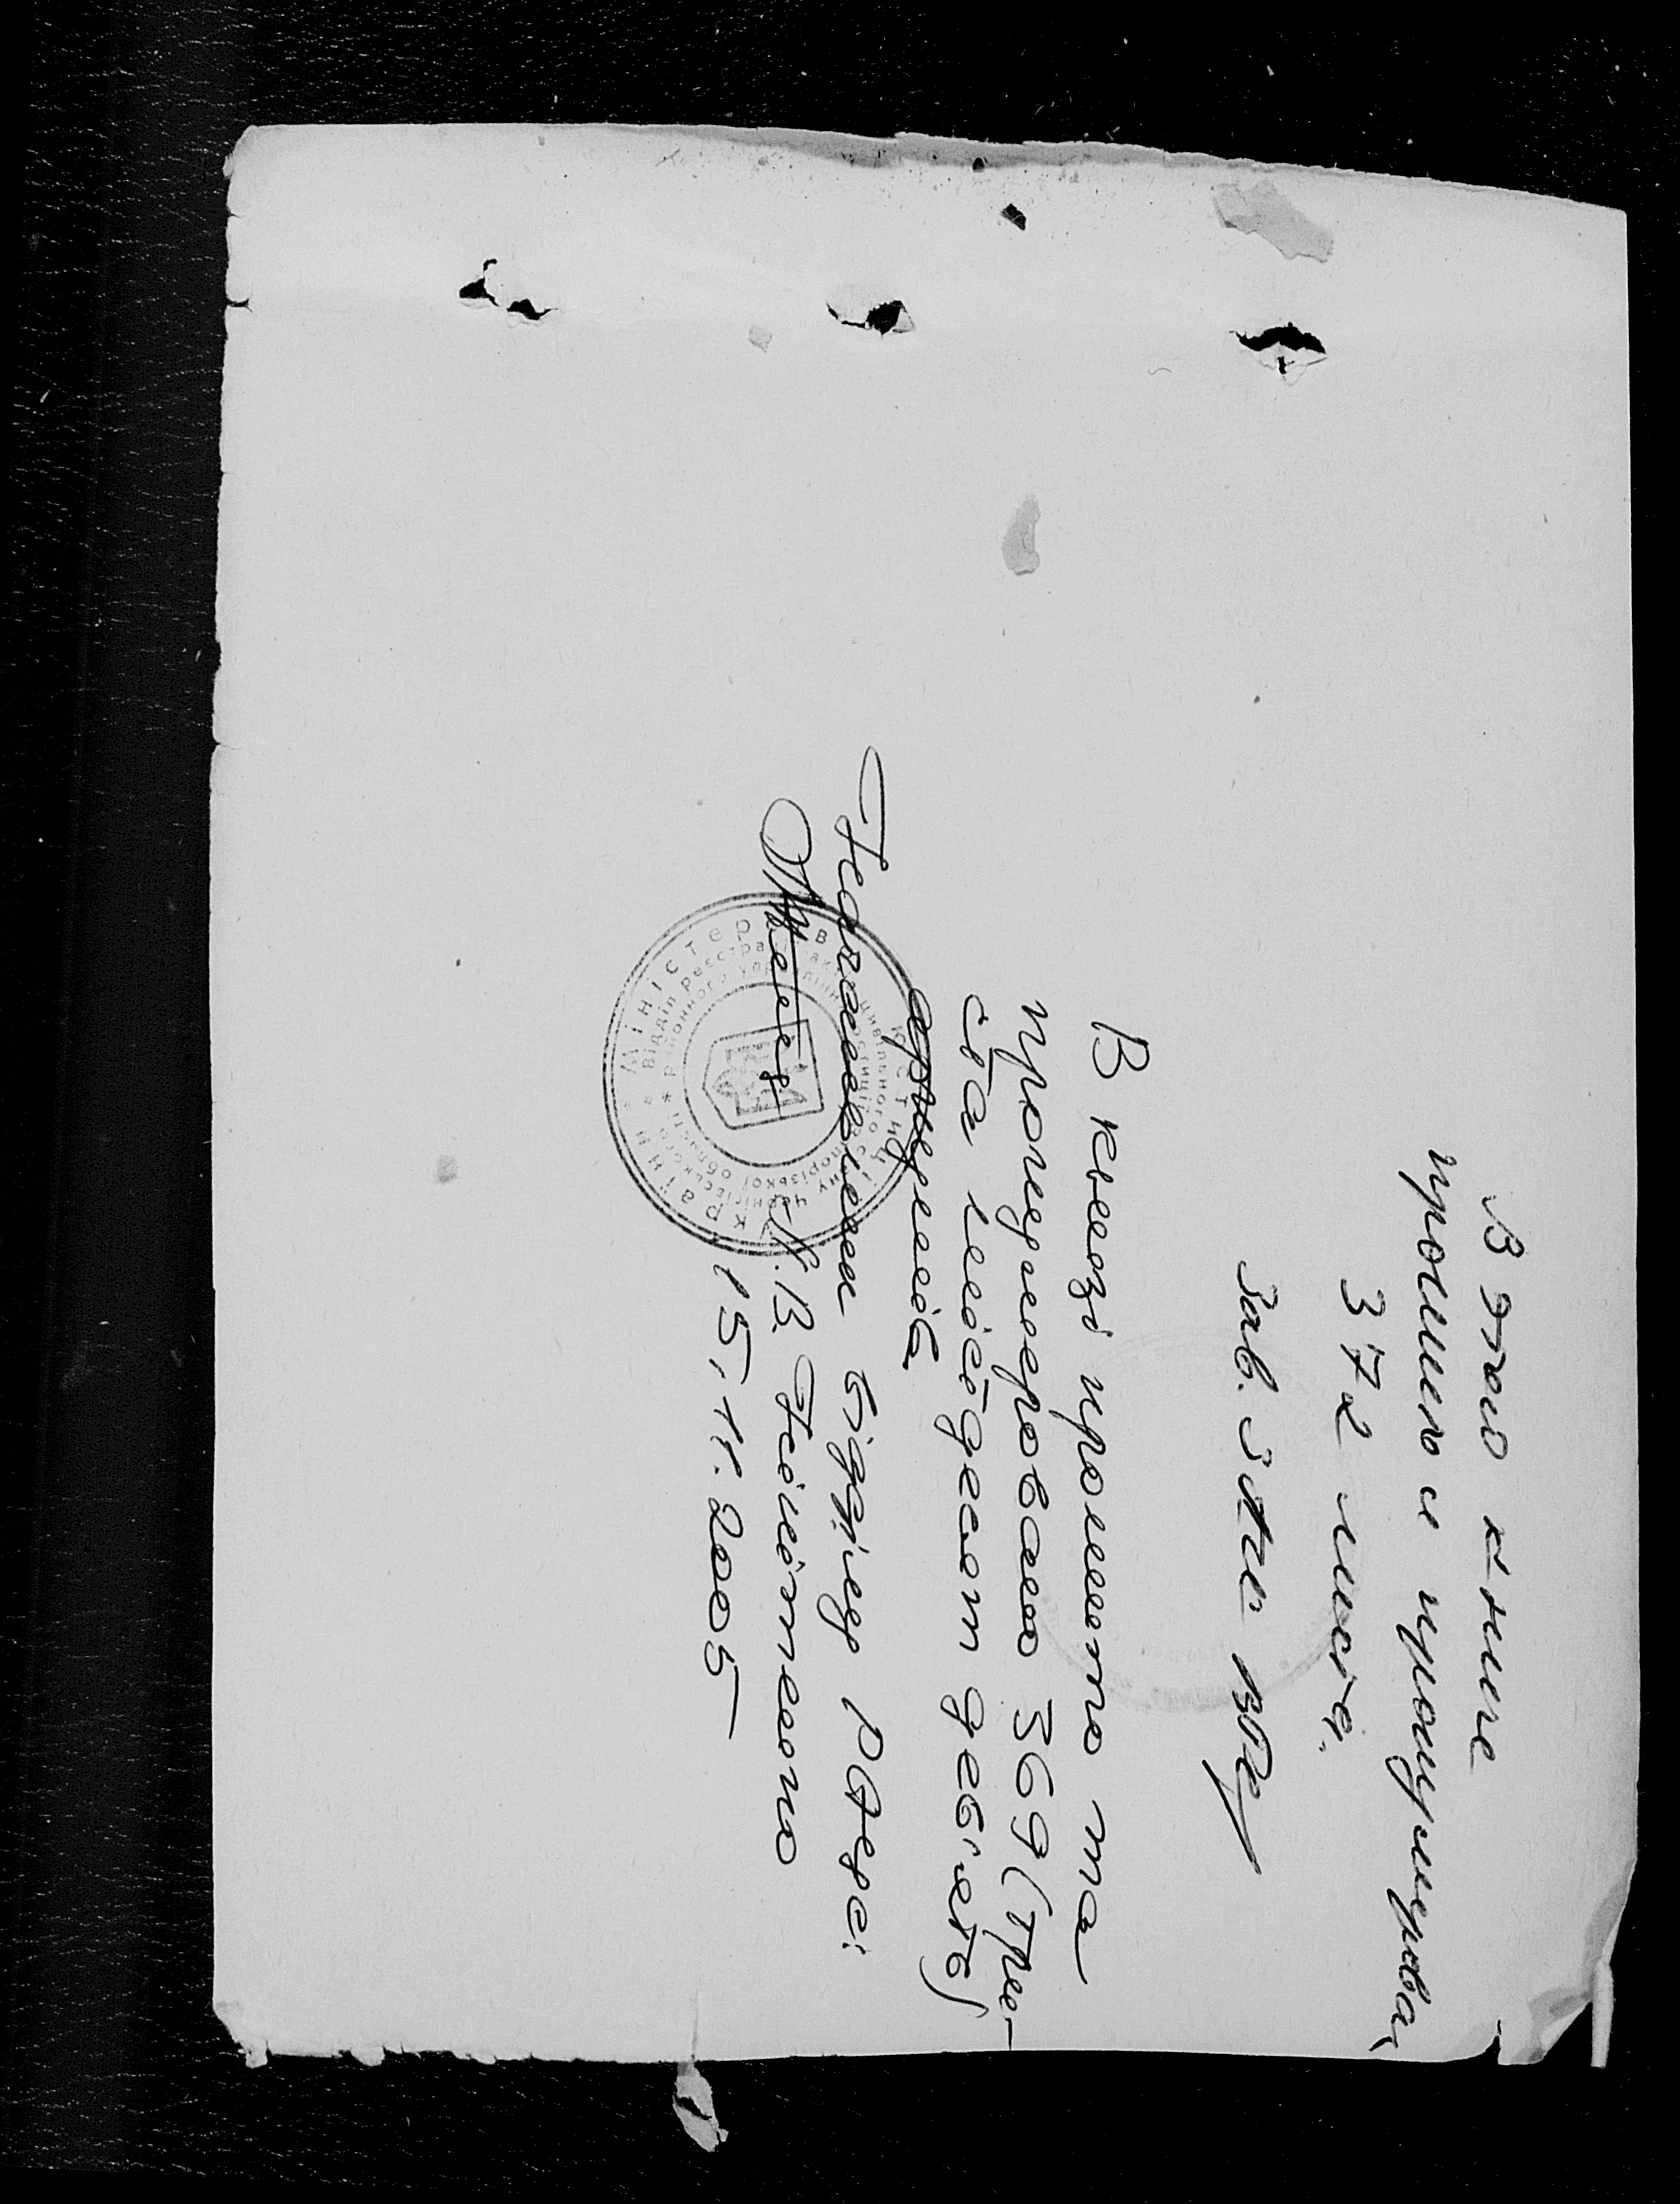 В этой книге
прошито и пронумерова
372 листа.
Зав. ЗАГС
В книзі прошито та
пронумеровано 369 (три-
ста шістдесят дев'ять)
аркушів
Начальник відділу РАЦС:
Н.В.
15.11.2005
Міністерство юстиції України
Відділ реєстрації актів цивільного
районного управління юстиції
Чернігівського
Запорізької області